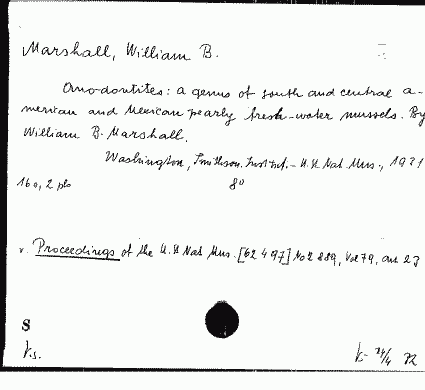 Marshall, William B.
Anodontites: a genus of south and central a-
merican and Mexican pearly fresh-water mussels. By
William B. Marshall.
Washington, Smithson. Institut. - U.S. Nat. Mus., 1931
16 o, 2 pls 8°
v. Proceedings of the U.S. Nat. Mus. [62497] No 2889, Vol 79, art 23
S
k.s.